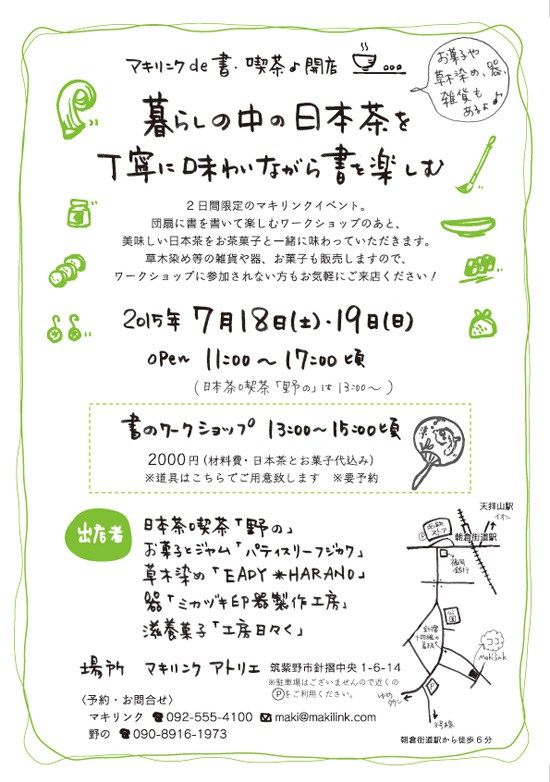 マキリンクde書・喫茶♪開店
お菓子や
草木染め、器、
雑貨も
あるよ♪
暮らしの中の日本茶を
丁寧に味わいながら書を楽しむ
２日間限定のマキリンクイベント。
団扇に書を書いて楽しむワークショップのあと、
美味しい日本茶をお茶菓子と一緒に味わっていただきます。
草木染め等の雑貨や器、お菓子も販売しますので、
ワークショップに参加されない方もお気軽にご来店ください！
2015年 7月18日(土)・19日(日)
open 11:00〜17:00頃
(日本茶喫茶「野の」は13:00〜)
書のワークショップ 13:00〜15:00頃
2000円（材料費・日本茶とお菓子代込み）
※道具はこちらでご用意致します ※要予約
出店者
日本茶喫茶「野の」
お菓子とジャム「パティスリーフジワク」
草木染め「EADY＊HARANO」
器「ミカヅキ印器製作工房」
滋養菓子「工房日々く」
場所 マキリンク アトリエ 筑紫野市針摺中央 1-6-14
※駐車場はございませんので近くの
Ⓟをご利用ください。
〈予約・お問合せ〉
マキリンク ☎092-555-4100 ✉maki@makilink.com
野の ☎090-8916-1973
天拝山駅
イオン
朝倉街道駅
P
福岡
銀行
公園
針摺
ココ
makilink
ゆめ
タウン
3号線
朝倉街道駅から徒歩６分